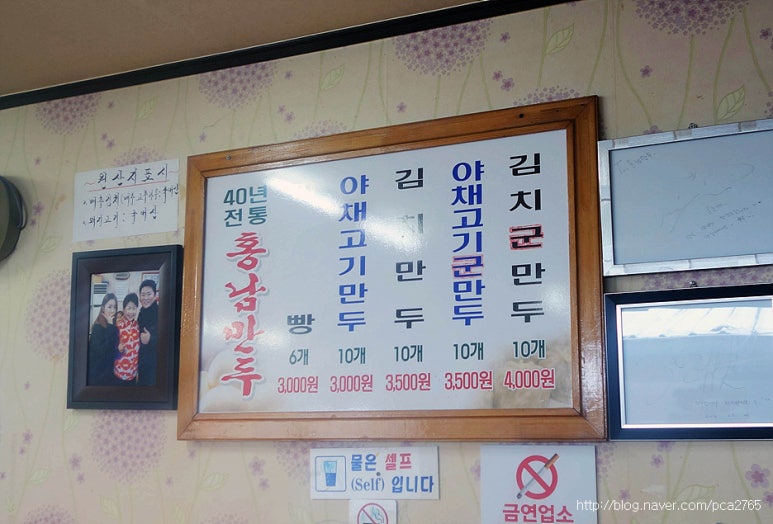 원산지표시
40년
전통
홍남만두
빵
6개
3,000원
야채고기만두
10개
3,000원
김치만두
10개
3,500원
야채고기군만두
10개
3,500원
김치군만두
10개
4,000원
물은 셀프
(Self) 입니다
금연업소
http://blog.naver.com/pca2765